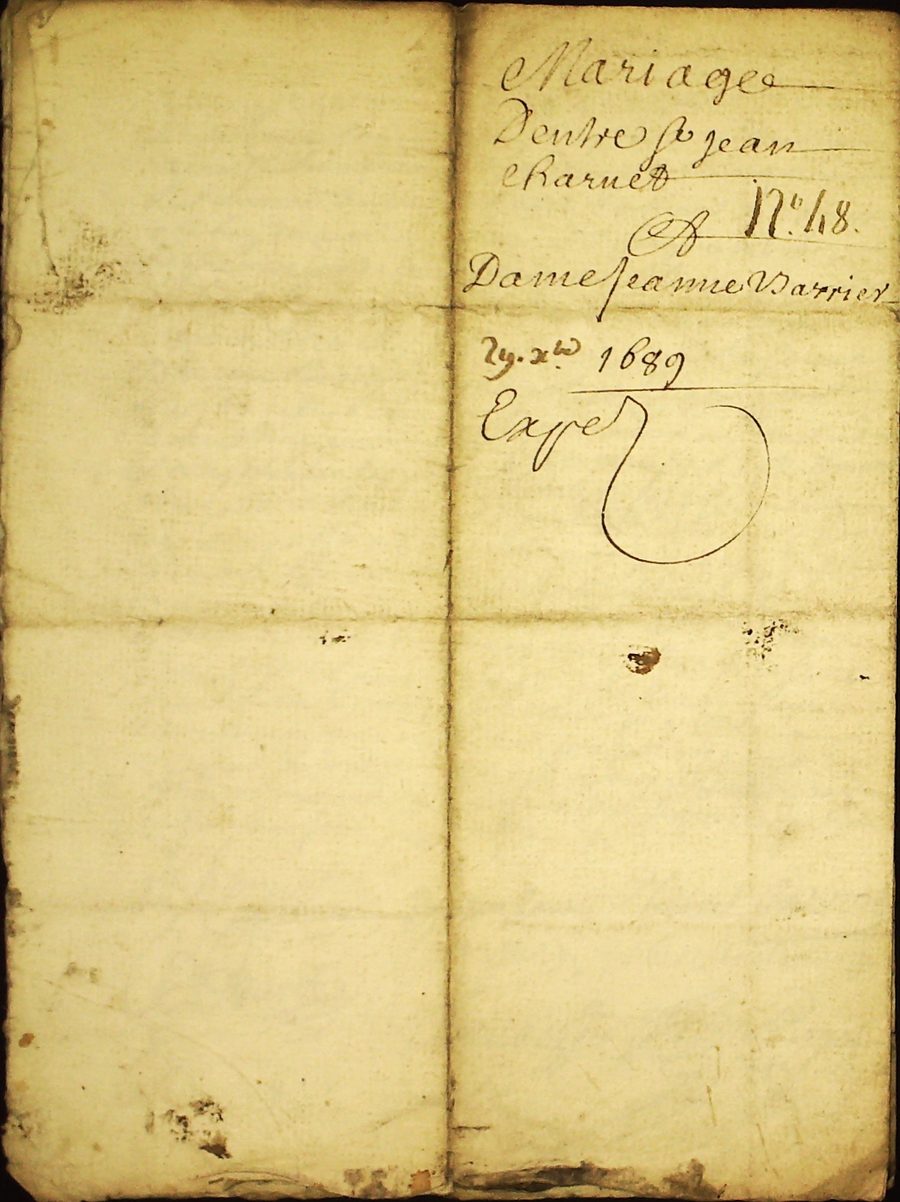 Mariage
Dentre Sr Jean
Charuet
Et No. 48.
Dame Jeanne Varrier
29. xbre 1689
Exped